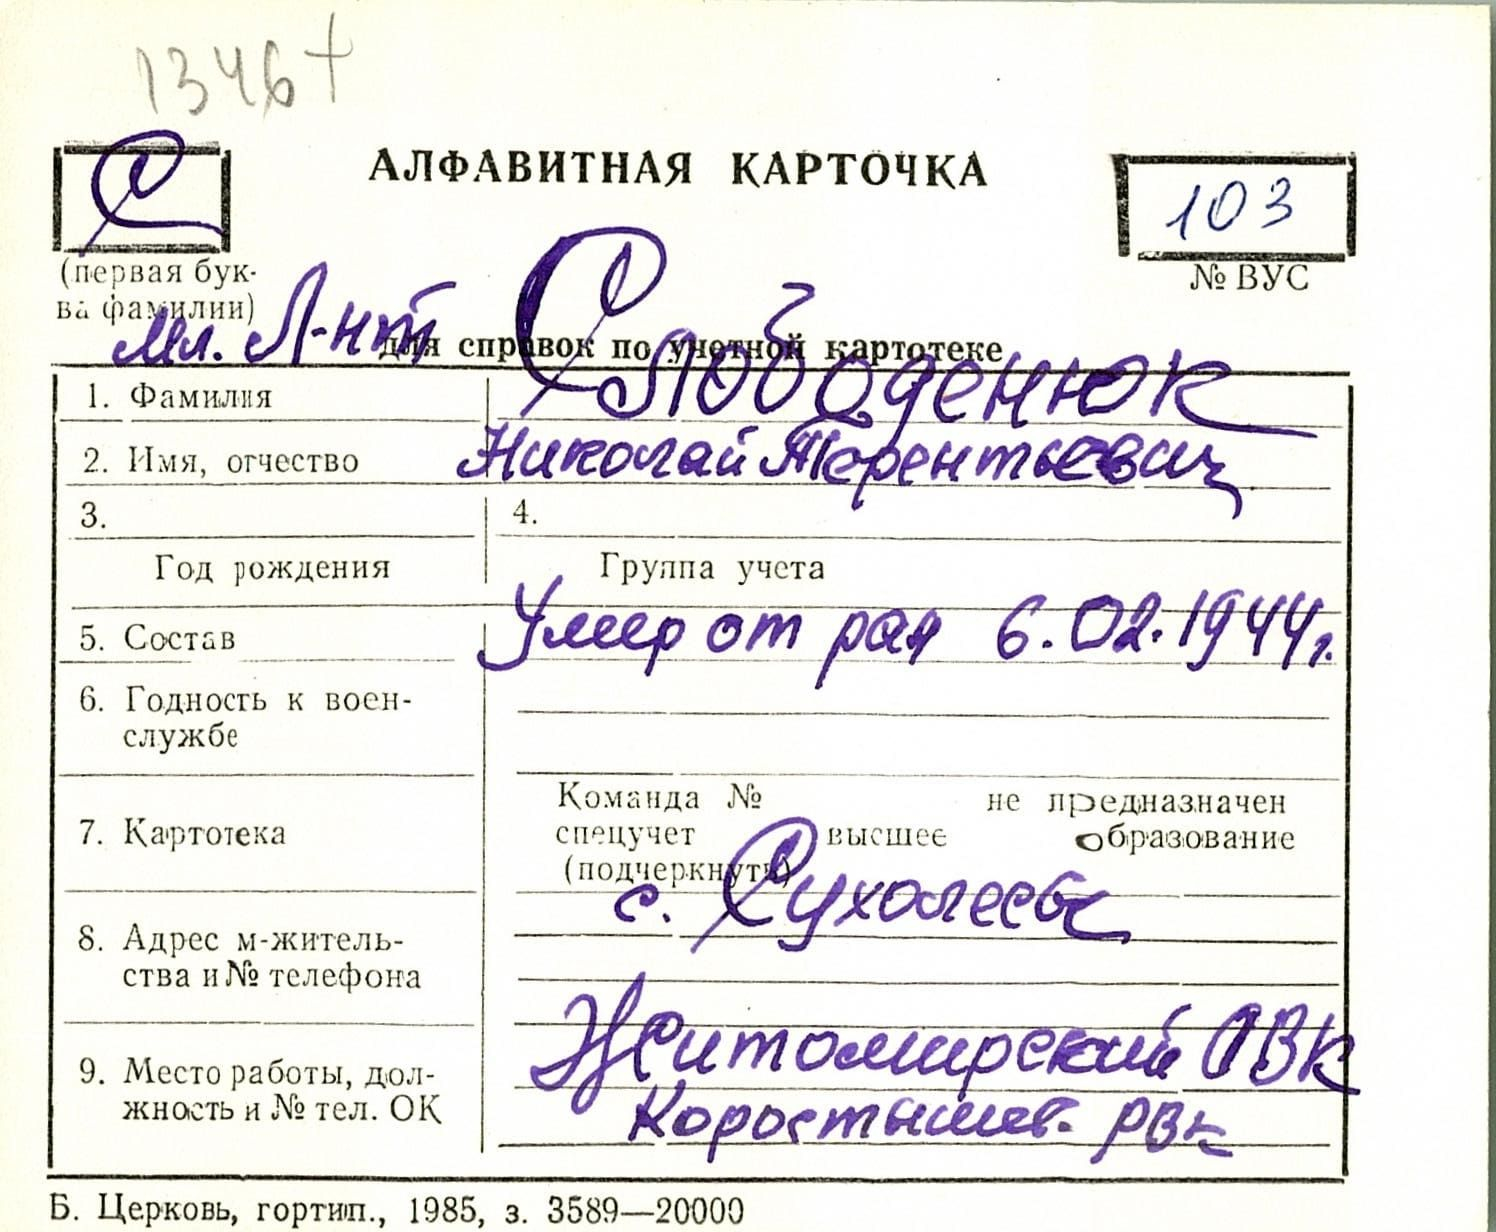 1346+
С
АЛФАВИТНАЯ КАРТОЧКА
103
(первая бук-
ва фамилии)
№ ВУС
Мл. Л-нт
для справок по учетной картотеке
1. Фамилия Слободенюк
2. Имя, отчество Николай Терентьевич
3. 4.
Год рождения Группа учета
5. Состав Умер от ран 6.02.1944г.
6. Годность к воен-
службе
Команда № не предназначен
7. Картотека спецучет высшее образование
(подчеркнуть)
с. Сухолесы
8. Адрес м-житель-
ства и № телефона
Житомирский ОВК
9. Место работы, дол-
жность и № тел. ОК
Коростышев. РВК
Б. Церковь, гортип., 1985, з. 3589—20000